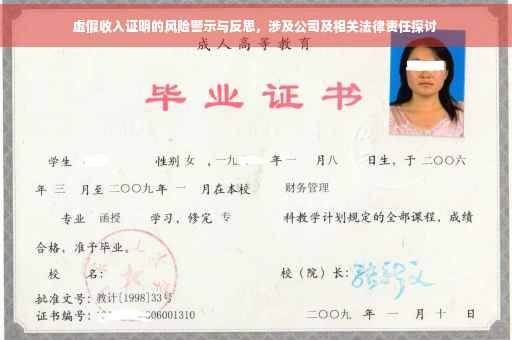 虚假收入证明的风险警示与反思，涉及公司及相关法律责任探讨
成人高等教育
毕业证书
学生 性别 女 ，一九 年 一 月 八 日生，于 二〇〇六
年 三 月至 二〇〇九 年 一 月在本校 财务管理
专业 函授 学习，修完 专 科教学计划规定的全部课程，成绩
合格，准予毕业。
校 名： 校（院）长：
批准文号：教计[1998]33号
证书编号： 06001310 二〇〇九 年 一 月 十 日